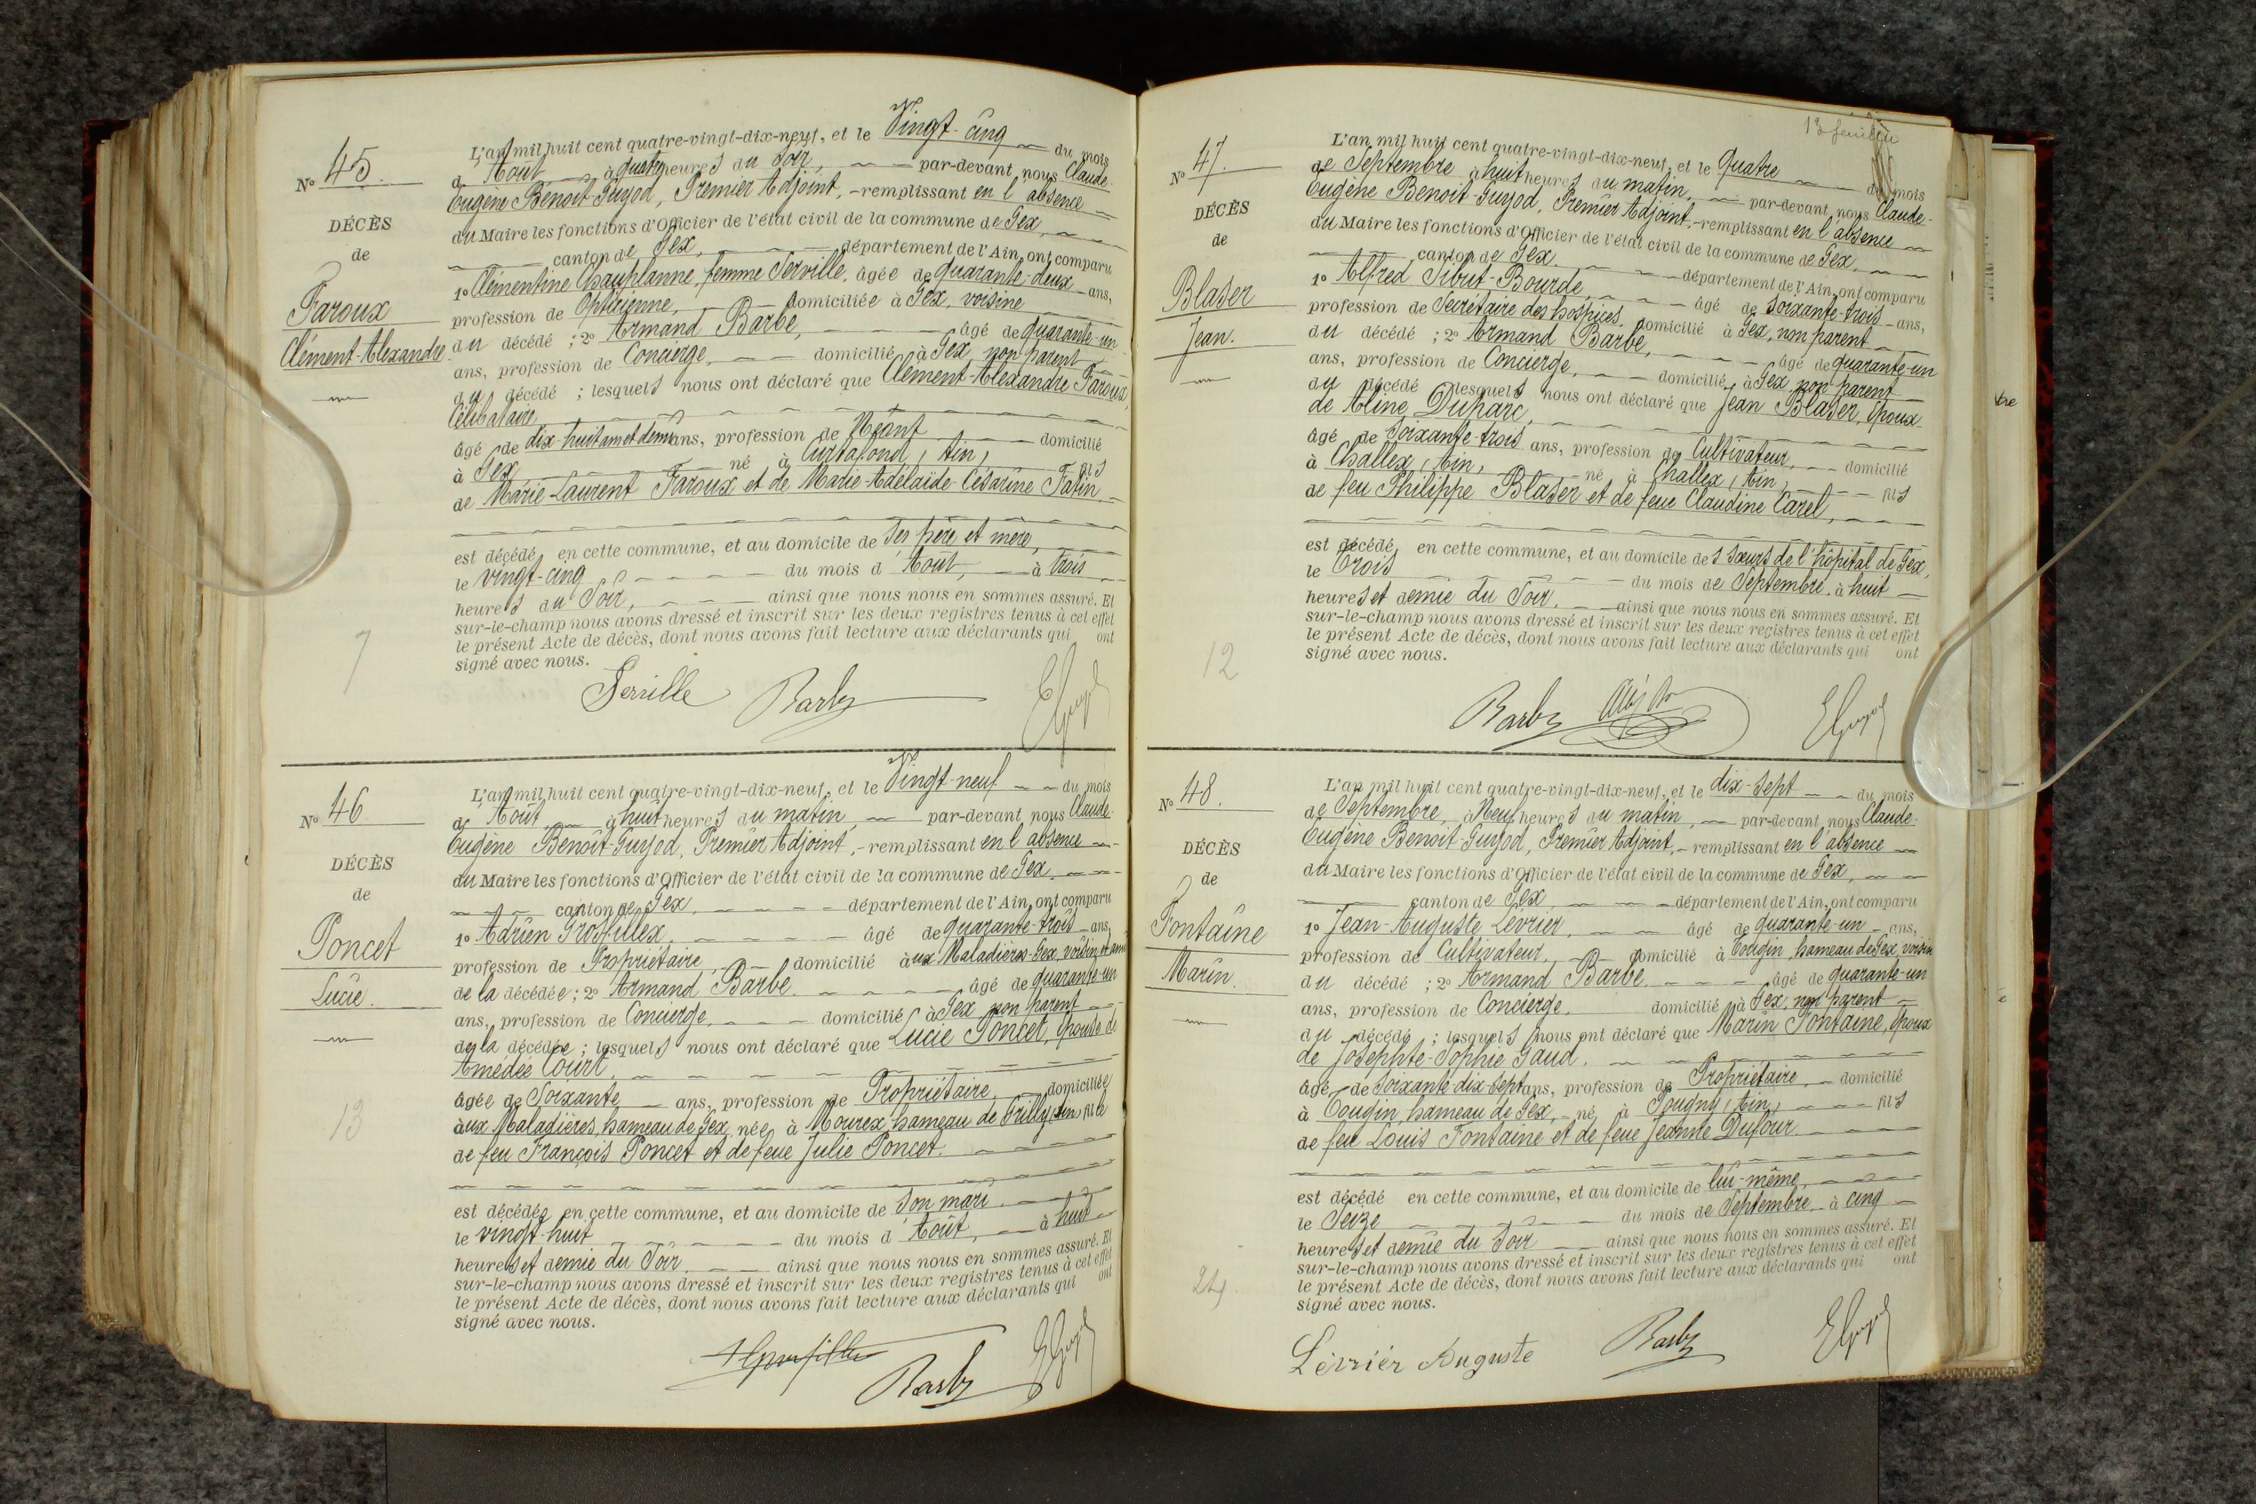 N° 45.
DÉCÈS
de
Faroux
Clément-Alexandre
L'an mil huit cent quatre-vingt-dix-neuf, et le Vingt-cinq du mois
d'Août à quatre heures du Soir, par-devant nous Claude-
Eugène Benoît-Guyod, Premier Adjoint, remplissant en l'absence
du Maire les fonctions d'Officier de l'état civil de la commune de Gex,
canton de Gex, département de l'Ain, ont comparu
1° Clémentine Chauplanne, femme Serville, âgée de quarante-deux ans,
profession de Opticienne, domiciliée à Gex, voisine
du décédé ; 2° Armand Barbe, âgé de quarante-un
ans, profession de Concierge, domicilié à Gex, non parent
du décédé ; lesquels nous ont déclaré que Clément-Alexandre Faroux,
Célibataire
âgé de dix-huit ans et demi ans, profession de Néant domicilié
à Gex né à Curtafond, Ain, fils
de Marie-Laurent Faroux et de Marie-Adélaïde-Césarine Fatin
est décédé en cette commune, et au domicile de ses père et mère,
le vingt-cinq du mois d'Août, à trois
heures du Soir, ainsi que nous nous en sommes assuré. Et
sur-le-champ nous avons dressé et inscrit sur les deux registres tenus à cet effet
le présent Acte de décès, dont nous avons fait lecture aux déclarants qui ont
signé avec nous.
7
Serville Barbe EGuyod
N° 46
DÉCÈS
de
Poncet
Lucie.
L'an mil huit cent quatre-vingt-dix-neuf, et le Vingt-neuf du mois
d'Août à huit heures du matin, par-devant nous Claude-
Eugène Benoît-Guyod, Premier Adjoint, remplissant en l'absence
du Maire les fonctions d'Officier de l'état civil de la commune de Gex,
canton de Gex, département de l'Ain, ont comparu
1° Adrien Grosfillex, âgé de quarante-trois ans,
profession de Propriétaire, domicilié aux Maladières-Gex, voisin et ami
de la décédée ; 2° Armand Barbe âgé de quarante-un
ans, profession de Concierge, domicilié à Gex non parent
de la décédée ; lesquels nous ont déclaré que Lucie Poncet, épouse de
Amédée Court,
âgée de Soixante ans, profession de Propriétaire, domiciliée
aux Maladières, hameau de Gex, née à Mourex hameau de Grilly, Ain fille
de feu François Poncet et de feue Julie Poncet.
est décédée en cette commune, et au domicile de son mari
le vingt-huit du mois d'Août, à huit
heures et demie du Soir, ainsi que nous nous en sommes assuré. Et
sur-le-champ nous avons dressé et inscrit sur les deux registres tenus à cet effet
le présent Acte de décès, dont nous avons fait lecture aux déclarants qui ont
signé avec nous.
13
Barbe EGuyod
N° 47.
DÉCÈS
de
Blaser
Jean.
L'an mil huit cent quatre-vingt-dix-neuf, et le Quatre du mois
de Septembre à huit heures du matin, par-devant nous Claude-
Eugène Benoît-Guyod, Premier Adjoint, remplissant en l'absence
du Maire les fonctions d'Officier de l'état civil de la commune de Gex,
canton de Gex. département de l'Ain, ont comparu
1° Alfred Sibut-Bourde, âgé de soixante-trois ans,
profession de Secrétaire des hospices, domicilié à Gex, non parent
du décédé ; 2° Armand Barbe, âgé de quarante-un
ans, profession de Concierge, domicilié à Gex non parent
du décédé lesquels nous ont déclaré que Jean Blaser, époux
de Aline Duparc,
âgé de Soixante-trois ans, profession de Cultivateur, domicilié
à Challex, Ain, né à Challex, Ain, fils
de feu Philippe Blaser et de feue Claudine Carel,
est décédé en cette commune, et au domicile des Sœurs de l'hôpital de Gex,
le Trois du mois de Septembre à huit
heures et demie du Soir. ainsi que nous nous en sommes assuré. Et
sur-le-champ nous avons dressé et inscrit sur les deux registres tenus à cet effet
le présent Acte de décès, dont nous avons fait lecture aux déclarants qui ont
signé avec nous.
12
Barbe EGuyod
N° 48.
DÉCÈS
de
Fontaine
Marin.
L'an mil huit cent quatre-vingt-dix-neuf, et le dix-sept du mois
de Septembre, à Neuf heures du matin, par-devant nous Claude-
Eugène Benoît-Guyod, Premier Adjoint, remplissant en l'absence
du Maire les fonctions d'Officier de l'état civil de la commune de Gex,
canton de Gex, département de l'Ain, ont comparu
1° Jean-Auguste Levrier, âgé de quarante-un ans,
profession de Cultivateur, domicilié à Tougin, hameau de Gex, voisin
du décédé ; 2° Armand Barbe âgé de quarante-un
ans, profession de Concierge, domicilié à Gex, non parent
du décédé ; lesquels nous ont déclaré que Marin Fontaine, époux
de Josephte-Sophie Gaud.
âgé de Soixante-dix-sept ans, profession de Propriétaire, domicilié
à Tougin, hameau de Gex, né à Pougny, Ain, fils
de feu Louis Fontaine et de feue Jeanne Dufour.
est décédé en cette commune, et au domicile de lui-même,
le Seize du mois de Septembre à cinq
heures et demie du Soir ainsi que nous nous en sommes assuré. Et
sur-le-champ nous avons dressé et inscrit sur les deux registres tenus à cet effet
le présent Acte de décès, dont nous avons fait lecture aux déclarants qui ont
signé avec nous.
24
Lévriér Auguste Barbe EGuyod